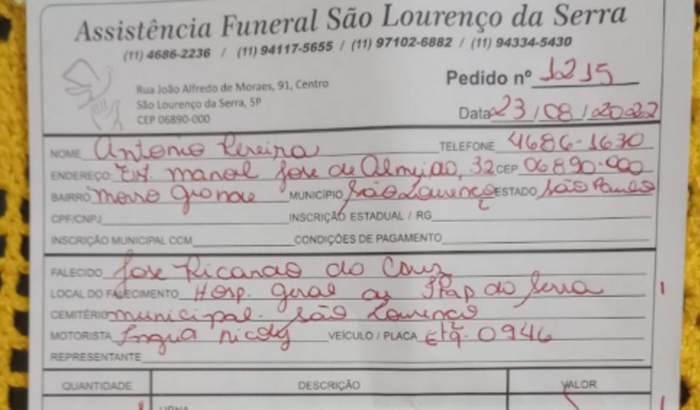 Assistência Funeral São Lourenço da Serra
(11) 4686-2236 / (11) 94117-5655 / (11) 97102-6882 / (11) 94334-5430
Rua João Alfredo de Moraes, 91, Centro
São Lourenço da Serra, SP
CEP 06890-000
Pedido nº 1215
Data 23/08/2022
NOME Antonio Pereira TELEFONE 4686-1630
ENDEREÇO: Est. manoel Jose de Almeida, 32 CEP 06890-000
BAIRRO morro grande MUNICÍPIO São Lourenço ESTADO São Paulo
CPF/CNPJ INSCRIÇÃO ESTADUAL / RG
INSCRIÇÃO MUNICIPAL CCM CONDIÇÕES DE PAGAMENTO
FALECIDO Jose Ricardo da Cruz
LOCAL DO FALECIMENTO Hosp. geral de Itap da Serra
CEMITÉRIO municipal. São Lourenço
MOTORISTA VEÍCULO / PLACA 0946
REPRESENTANTE
QUANTIDADE DESCRIÇÃO VALOR